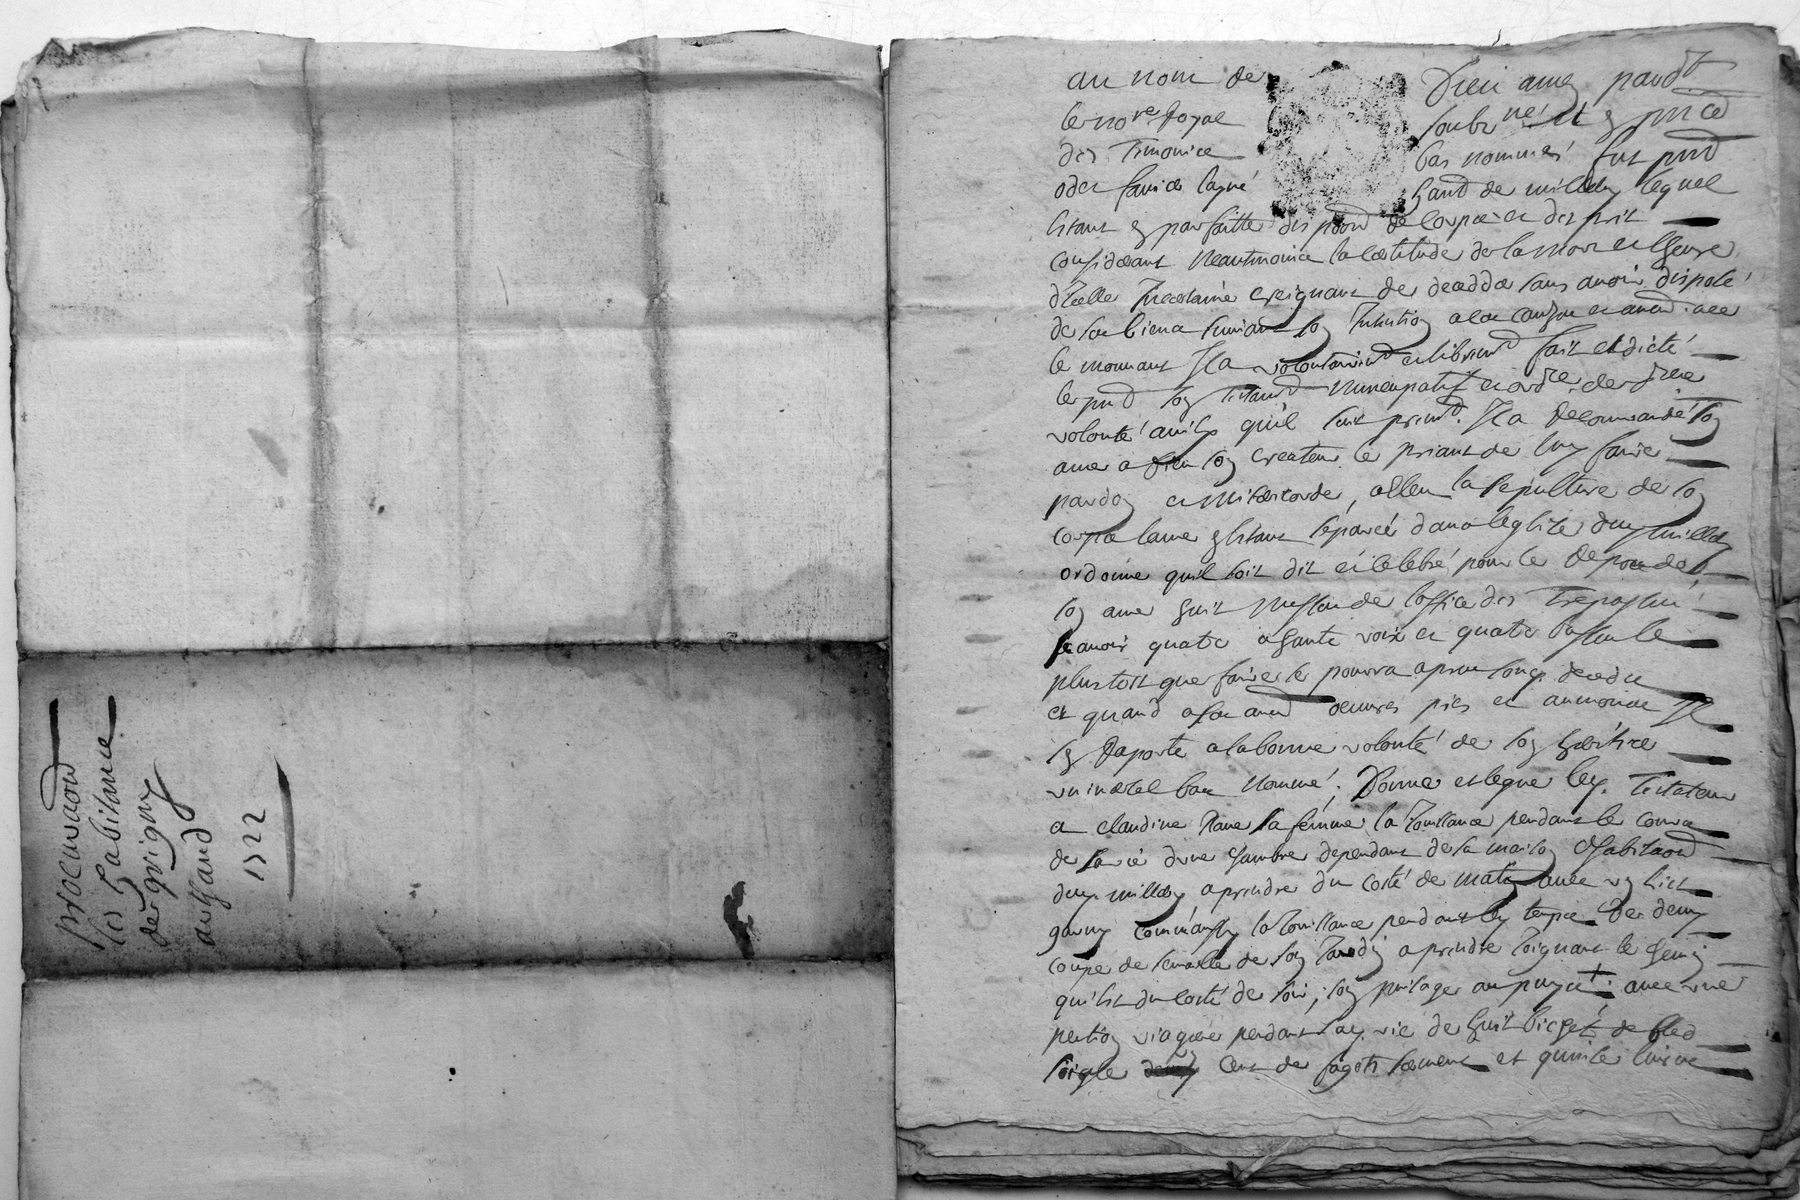 procuration
les habitans
de grigny
a
1722
au nom de Dieu amen pardt
le nore Royal soubznés et en pnce
des Temoins bas nommés fut pnt
de millery lequel
estant en parfaitte de corps et desprit
considerant neantmoins la certitude de la mort et lheure
dicelle Incertaine creignant de deceddé sans avoir disposé
de ses biens suivant son Intention a ces causes et
le mouvant Il a volontairemt et libremt fait et dicté
le pnt son Testamt nuncupatif et ordre de dre
volonté ainsy quil suit premt. Il a Recommandé son
ame a Dieu son createur le priant de luy faire
pardon et misericorde, la sepulture de son
corps lame estant séparée dans léglise dud millery
ordonne quil soit dit et célébré pour le Repos de
son ame huit Messes de loffice des Trepassés
scavoir quatre a haute voix et quatre basses le
plustost que faire se pourra apres son deceds
et quand a ses oeuvres pies et aumones Il
sen Raporte a la bonne volonté de son héritiere
universel bas nommé; Donne et legue led. Testateur
a claudine sa femme la Jouissance pendant le cours
de sa vie dune chambre dependant de la maison
dud. millery a prendre du costé de matin avec un lict
garny la Jouissance pendant led temps De deux
coupes de semaille de son Jardin a prendre Joignant le chemin
quest du costé de soir, son puisage au puys + avec une
pention viagere pendant sad. vie de huit bichets de bled
soigle cent de fagots serment et